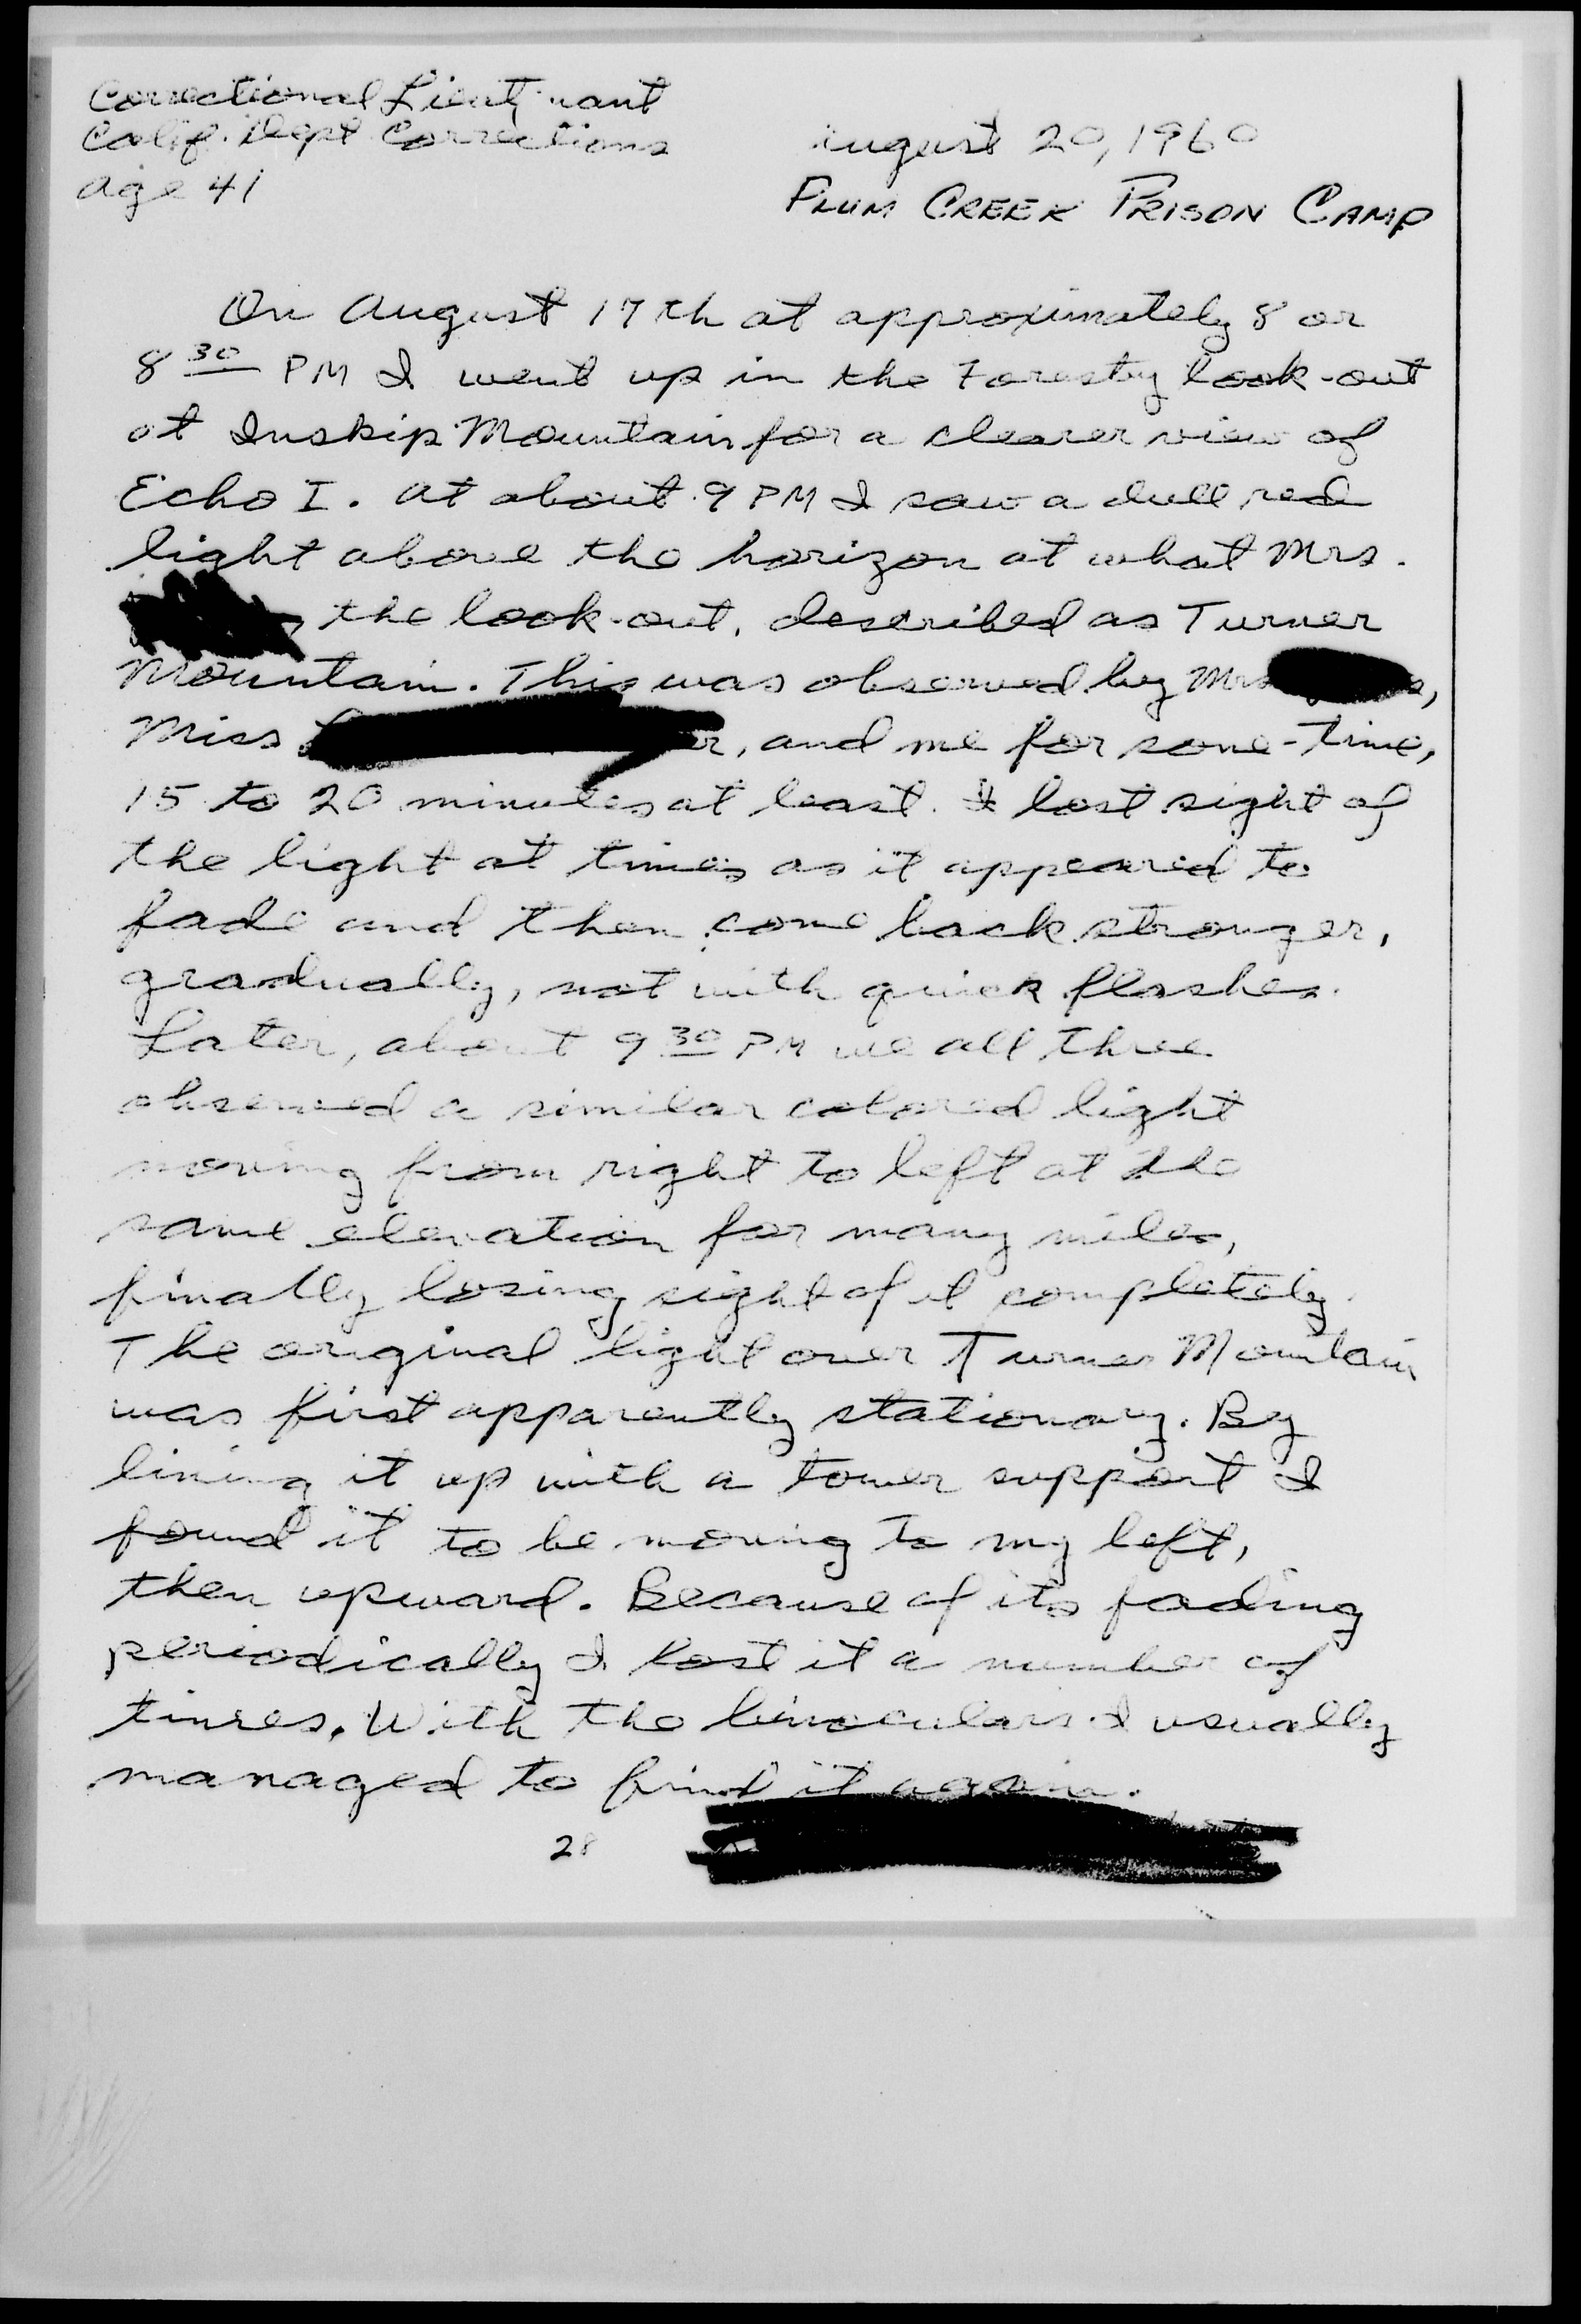 Correctional Lieutenant
Calif. Dept Corrections
age 41
August 20, 1960
PLUM CREEK PRISON CAMP
On August 17th at approximately 8 or
8 30 PM I went up in the Forestry look-out
at Inskip Mountain for a clearer view of
Echo I. At about 9 PM I saw a dull red
light above the horizon at what Mrs.
, the look-out, described as Turner
Mountain. This was observed by Mrs s,
Miss r, and me for some-time,
15 to 20 minutes at least. I lost sight of
the light at times as it appeared to
fade and then come back stronger,
gradually, not with quick flashes.
Later, about 9 30 PM we all three
observed a similar colored light
moving from right to left at the
same elevation for many miles,
finally losing sight of it completely.
The original light over Turner Mountain
was first apparently stationary. By
lining it up with a tower support I
found it to be moving to my left,
then upward. Because of its fading
periodically I lost it a number of
times. With the binoculars I usually
managed to find it again.
28